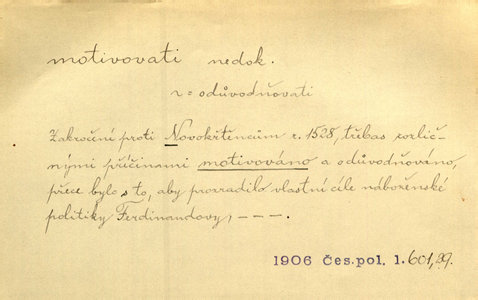 motivovati nedok.
= odůvodňovati
Zakročení proti Novokřtěncům r. 1528, třebas rozlič-
nými příčinami motivováno a odůvodňováno,
přece bylo s to, aby prozradilo vlastní cíle náboženské
politiky Ferdinandovy, – – –.
1906 Čes. pol. 1. 601, 29.